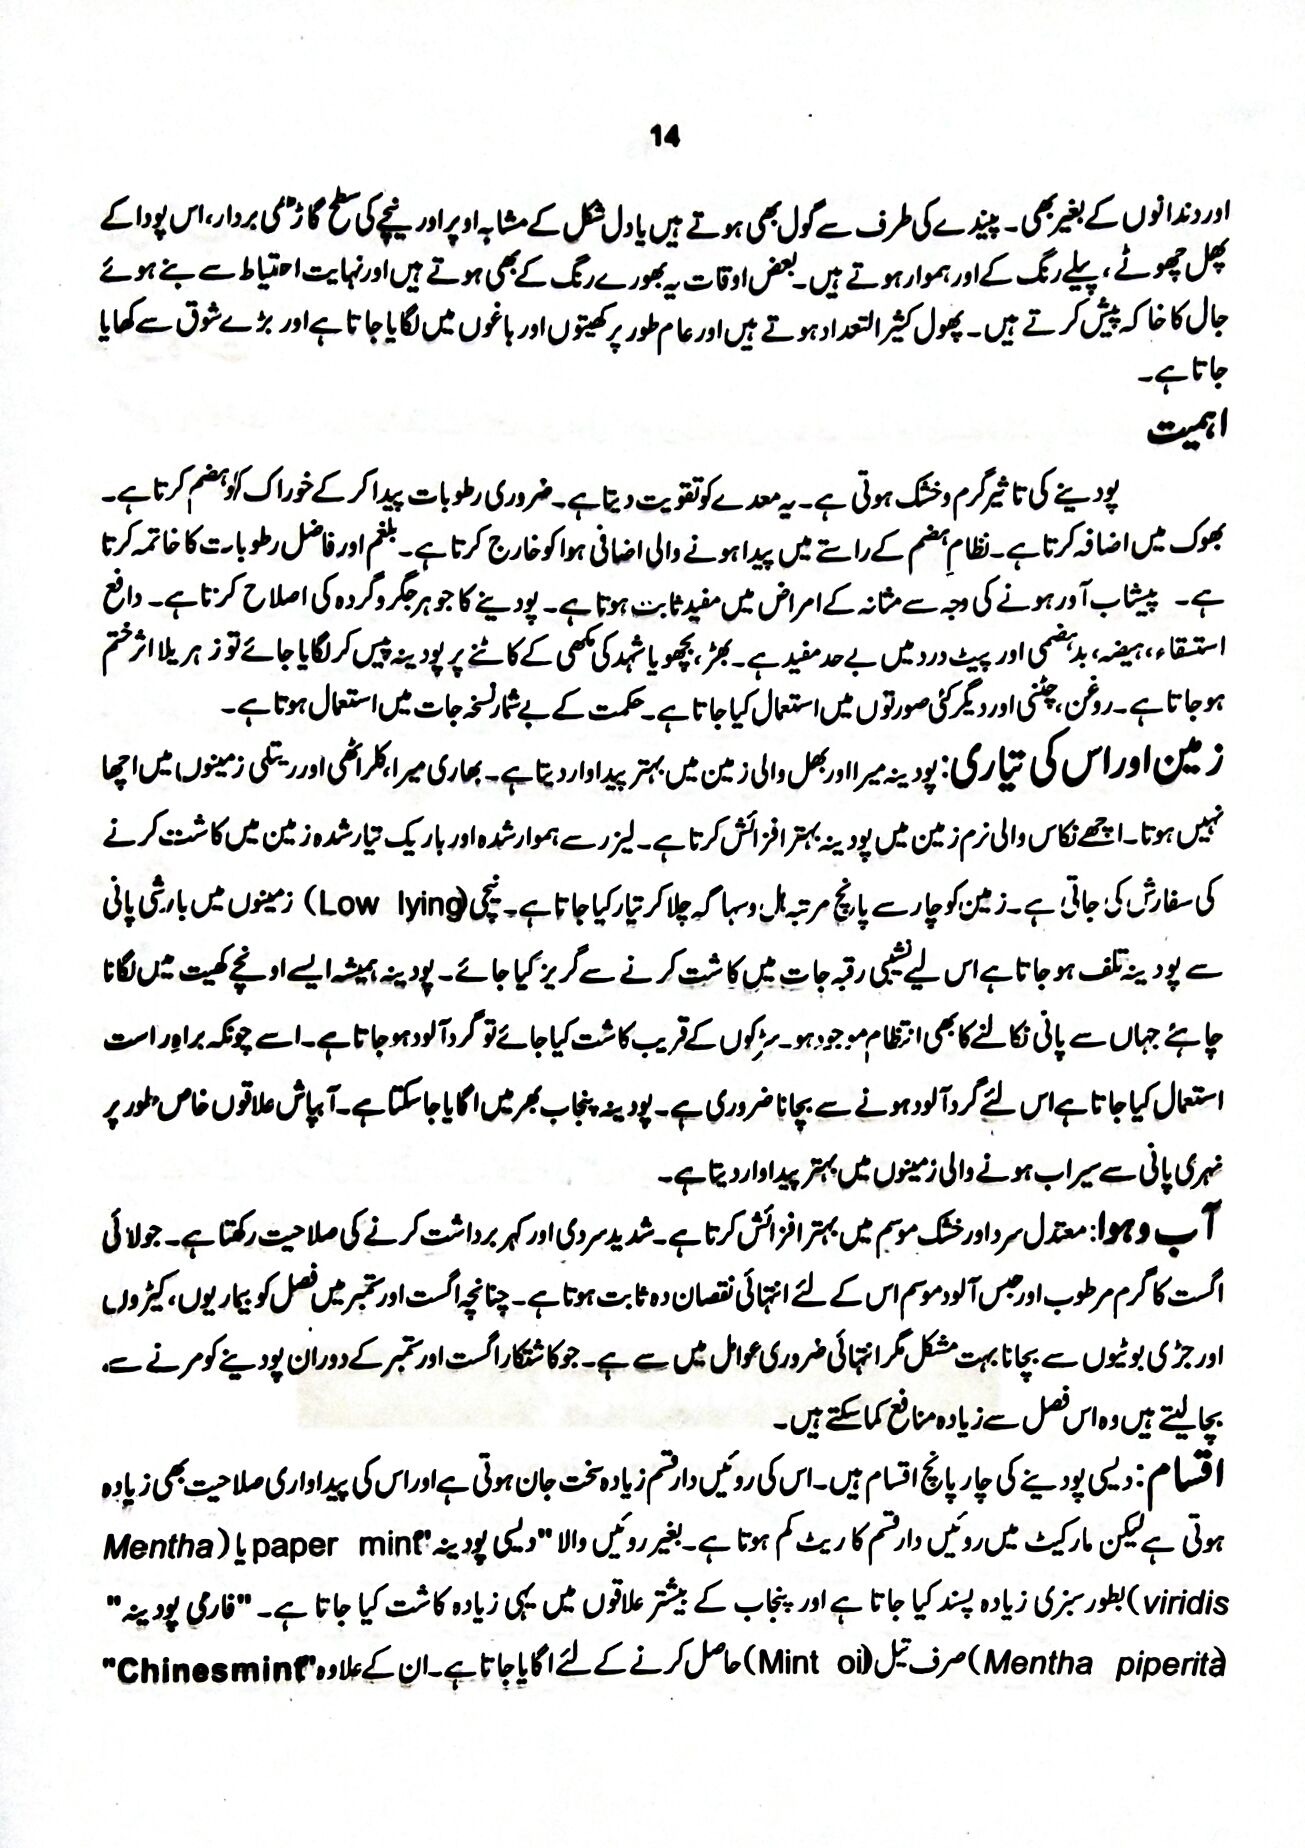 14
اور دندانوں کے بغیر بھی۔ پیندے کی طرف سے گول بھی ہوتے ہیں یا دل شکل کے مشابہ اوپر اور نیچے کی سطح گاڑھی بردار، اس پودا کے
پھل چھوٹے، پیلے رنگ کے اور ہموار ہوتے ہیں۔ بعض اوقات یہ بھورے رنگ کے بھی ہوتے ہیں اور نہایت احتیاط سے بنے ہوئے
جال کا خاکہ پیش کرتے ہیں۔ پھول کثیر التعداد ہوتے ہیں اور عام طور پر کھیتوں اور باغوں میں لگایا جاتا ہے اور بڑے شوق سے کھایا
جاتا ہے۔
اہمیت
پودینے کی تاثیر گرم و خشک ہوتی ہے۔ یہ معدے کو تقویت دیتا ہے۔ ضروری رطوبات پیدا کر کے خوراک کو ہضم کرتا ہے۔
بھوک میں اضافہ کرتا ہے۔ نظامِ ہضم کے راستے میں پیدا ہونے والی اضافی ہوا کو خارج کرتا ہے۔ بلغم اور فاضل رطوبات کا خاتمہ کرتا
ہے۔ پیشاب آور ہونے کی وجہ سے مثانہ کے امراض میں مفید ثابت ہوتا ہے۔ پودینے کا جوہر جگر و گردہ کی اصلاح کرتا ہے۔ دافع
استسقاء، ہیضہ، بدہضمی اور پیٹ درد میں بے حد مفید ہے۔ بھڑ، بچھو یا شہد کی مکھی کے کاٹنے پر پودینہ پیس کر لگایا جائے تو زہریلا اثر ختم
ہو جاتا ہے۔ روغن، چٹنی اور دیگر کئی صورتوں میں استعمال کیا جاتا ہے۔ حکمت کے بے شمار نسخہ جات میں استعمال ہوتا ہے۔
زمین اور اس کی تیاری: پودینہ میرا اور بھل والی زمین میں بہتر پیداوار دیتا ہے۔ بھاری میرا، کلراٹھی اور ریتلی زمینوں میں اچھا
نہیں ہوتا۔ اچھے نکاس والی نرم زمین میں پودینہ بہتر افزائش کرتا ہے۔ لیزر سے ہموار شدہ اور باریک تیار شدہ زمین میں کاشت کرنے
کی سفارش کی جاتی ہے۔ زمین کو چار سے پانچ مرتبہ ہل و سہاگہ چلا کر تیار کیا جاتا ہے۔ نیچی (Low lying) زمینوں میں بارشی پانی
سے پودینہ تلف ہو جاتا ہے اس لیے نشیبی رقبہ جات میں کاشت کرنے سے گریز کیا جائے۔ پودینہ ہمیشہ ایسے اونچے کھیت میں لگانا
چاہئے جہاں سے پانی نکالنے کا بھی انتظام موجود ہو۔ سڑکوں کے قریب کاشت کیا جائے تو گرد آلود ہو جاتا ہے۔ اسے چونکہ براہِ راست
استعمال کیا جاتا ہے اس لئے گرد آلود ہونے سے بچانا ضروری ہے۔ پودینہ پنجاب بھر میں اگایا جا سکتا ہے۔ آبپاش علاقوں خاص طور پر
نہری پانی سے سیراب ہونے والی زمینوں میں بہتر پیداوار دیتا ہے۔
آب و ہوا: معتدل سرد اور خشک موسم میں بہتر افزائش کرتا ہے۔ شدید سردی اور کہر برداشت کرنے کی صلاحیت رکھتا ہے۔ جولائی
اگست کا گرم مرطوب اور حبس آلود موسم اس کے لئے انتہائی نقصان دہ ثابت ہوتا ہے۔ چنانچہ اگست اور ستمبر میں فصل کو بیماریوں، کیڑوں
اور جڑی بوٹیوں سے بچانا بہت مشکل مگر انتہائی ضروری عوامل میں سے ہے۔ جو کاشتکار اگست اور ستمبر کے دوران پودینے کو مرنے سے
بچا لیتے ہیں وہ اس فصل سے زیادہ منافع کما سکتے ہیں۔
اقسام: دیسی پودینے کی چار پانچ اقسام ہیں۔ اس کی روئیں دار قسم زیادہ سخت جان ہوتی ہے اور اس کی پیداواری صلاحیت بھی زیادہ
ہوتی ہے لیکن مارکیٹ میں روئیں دار قسم کا ریٹ کم ہوتا ہے۔ بغیر روئیں والا "دیسی پودینہ" paper mint یا (Mentha
viridis) بطور سبزی زیادہ پسند کیا جاتا ہے اور پنجاب کے بیشتر علاقوں میں یہی زیادہ کاشت کیا جاتا ہے۔ "فارمی پودینہ"
(Mentha piperita) صرف تیل (Mint oil) حاصل کرنے کے لئے اگایا جاتا ہے۔ ان کے علاوہ "Chinesmint"